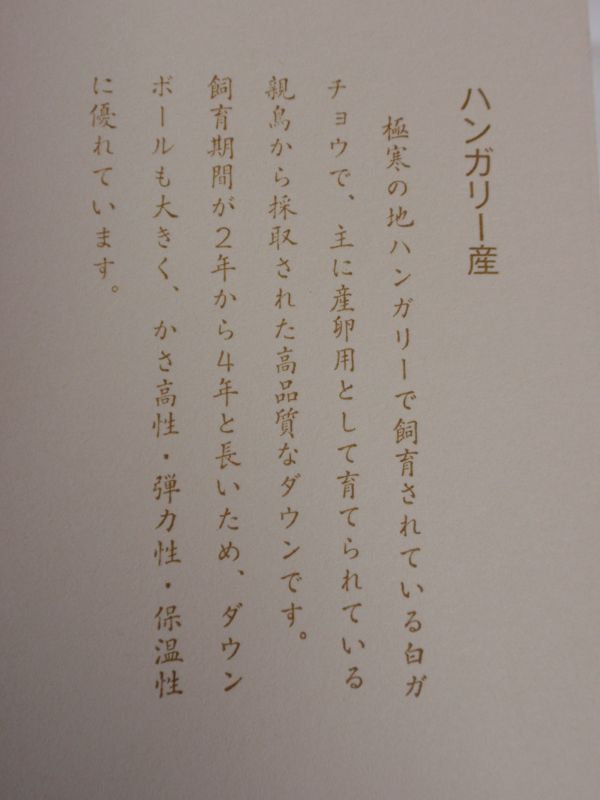 ハンガリー産
極寒の地ハンガリーで飼育されている白ガ
チョウで、主に産卵用として育てられている
親鳥から採取された高品質なダウンです。
飼育期間が2年から4年と長いため、ダウン
ボールも大きく、かさ高性・弾力性・保温性
に優れています。